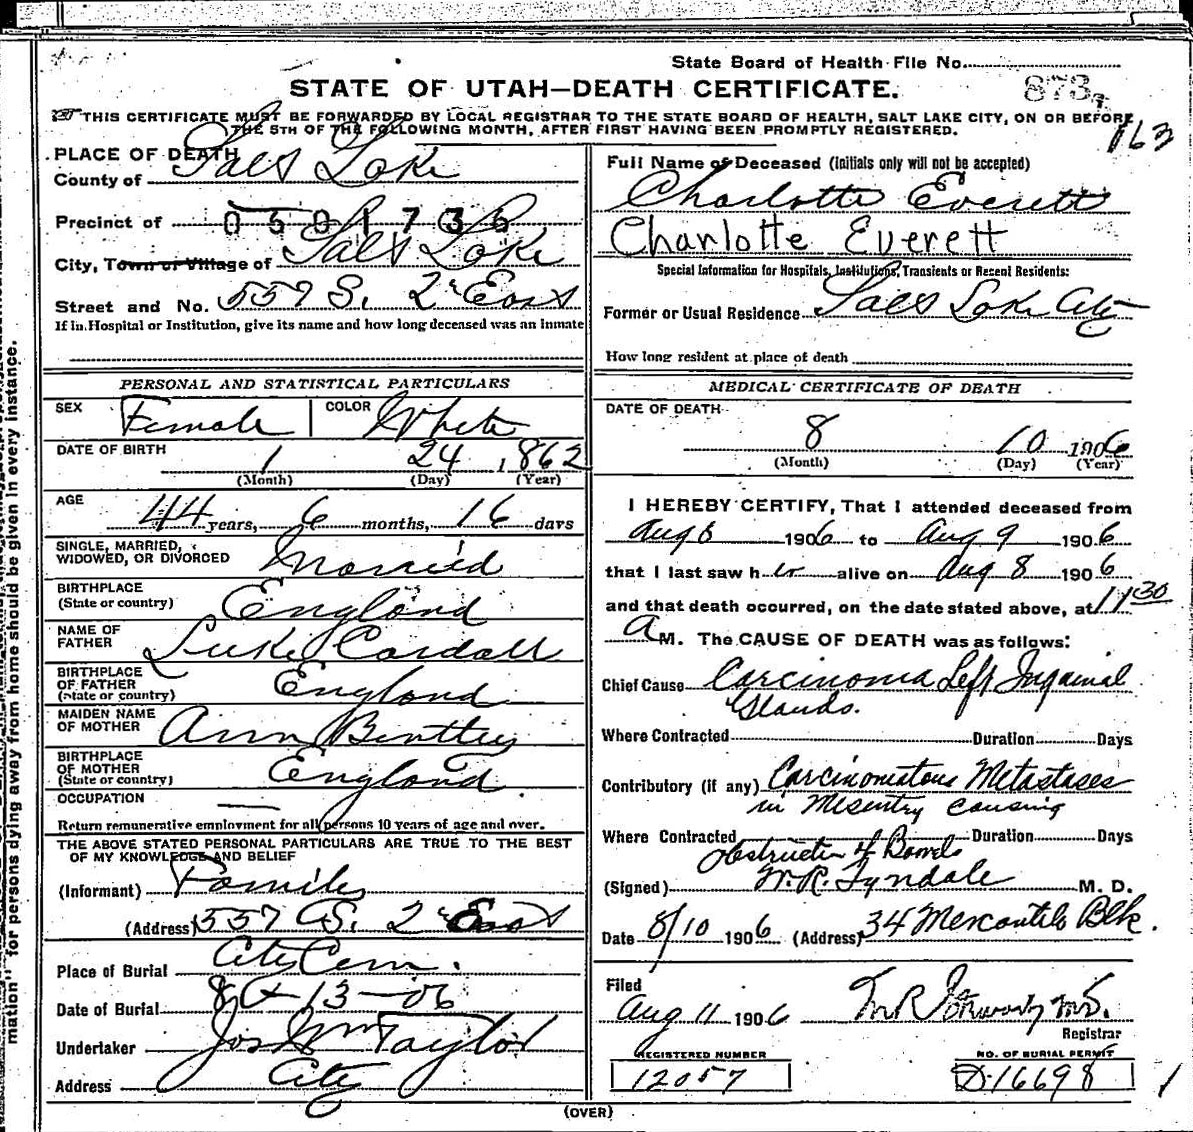 State Board of Health File No.
STATE OF UTAH—DEATH CERTIFICATE.
THIS CERTIFICATE MUST BE FORWARDED BY LOCAL REGISTRAR TO THE STATE BOARD OF HEALTH, SALT LAKE CITY, ON OR BEFORE
THE 5TH OF THE FOLLOWING MONTH, AFTER FIRST HAVING BEEN PROMPTLY REGISTERED.
163
PLACE OF DEATH
County of Salt Lake
Precinct of 0501736
City, Town or Village of Salt Lake
Street and No. 557 S. 2d East
If in Hospital or Institution, give its name and how long deceased was an inmate
PERSONAL AND STATISTICAL PARTICULARS
SEX Female COLOR White
DATE OF BIRTH 1 24 1862
(Month) (Day) (Year)
AGE 44 years, 6 months, 16 days
SINGLE, MARRIED,
WIDOWED, OR DIVORCED Married
BIRTHPLACE
(State or country) England
NAME OF
FATHER Luke Cardall
BIRTHPLACE
OF FATHER
(State or country) England
MAIDEN NAME
OF MOTHER Ann Bentley
BIRTHPLACE
OF MOTHER
(State or country) England
OCCUPATION —
Return remunerative employment for all persons 10 years of age and over.
THE ABOVE STATED PERSONAL PARTICULARS ARE TRUE TO THE BEST
OF MY KNOWLEDGE AND BELIEF
(Informant) Family
(Address) 557 S. 2d East
Place of Burial City Cem.
Date of Burial 8-13-06
Undertaker Jos Wm Taylor
Address City
Full Name of Deceased (Initials only will not be accepted)
Charlotte Everett
Charlotte Everett
Special Information for Hospitals, Institutions, Transients or Recent Residents:
Former or Usual Residence Salt Lake City
How long resident at place of death
MEDICAL CERTIFICATE OF DEATH
DATE OF DEATH
8 10 1906
(Month) (Day) (Year)
I HEREBY CERTIFY, That I attended deceased from
Aug 8 1906 to Aug 9 1906
that I last saw her alive on Aug 8 1906
and that death occurred, on the date stated above, at 11 30
A M. The CAUSE OF DEATH was as follows:
Chief Cause Carcinoma Left Inguinal
Glands.
Where Contracted Duration Days
Contributory (if any) Carcinomatous Metastases
in Mesentry causing
Where Contracted Duration Days
obstruction of Bowels
(Signed) W.R. Tyndale M. D.
Date 8/10 1906 (Address) 34 Mercantile Blk.
Filed
Aug 11 1906
Registrar
REGISTERED NUMBER
12057
NO. OF BURIAL PERMIT
D.16698
(OVER)
mation" for persons dying away from home should be given in every instance.